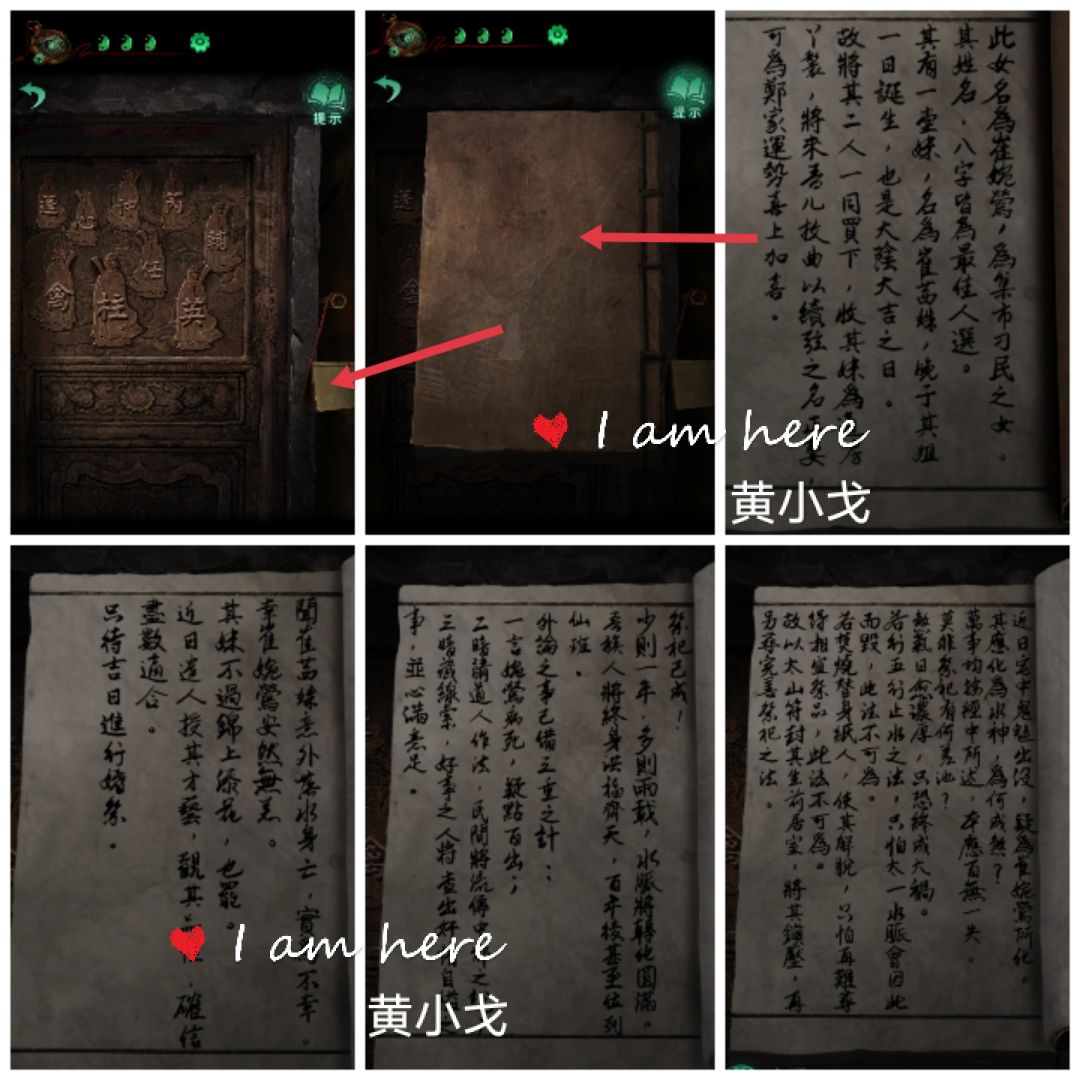 提示
蓬
心
芮
輔
任
禽
柱
英
提示
此女名為崔婉鶯，為集市刁民之女。
其姓名，八字皆為最佳人選。
其有一堂妹，名為崔菡姝，晚于其姐
一日誕生，也是大陰大吉之日。
故將其二人一同買下，收其妹為房
丫鬟，將來吾兒枚曲以續弦之名妾
可為鄭家運勢喜上加喜。
I am here
黄小戈
聞崔菡姝意外落水身亡，實不幸。
幸崔婉鶯安然無恙。
其妹不過錦上添花，也罷。
近日遣人授其才藝，觀其，確信
盡數適合。
只待吉日進行婚祭。
祭祀已成！
少則一年，多則兩載，水脈將轉化圓滿。
吾族人將終身洪福齊天，百年後甚至位列
仙班。
外論之事已備三重之計：
一言婉鶯病死，疑點百出；
二暗請道人作法，民間將流傳之
三暗藏線索，好事之人將查出奸自
事，並心滿意足。
I am here
黄小戈
近日宅中鬼魅出沒，疑為崔婉鶯所化。
其應化為水神，為何成煞？
萬事均按經中所述，本應百無一失。
莫非祭祀有何差池？
煞氣日愈濃厚，只恐終成大禍。
若行五行止水之法，只怕太一水脈會因此
而毀，此法不可為。
若焚燒替身紙人，使其解脫，只怕再難尋
得相宜祭品，此法不可為。
故以太山符封其生前居室，將其鎮壓，再
另尋完善祭祀之法。